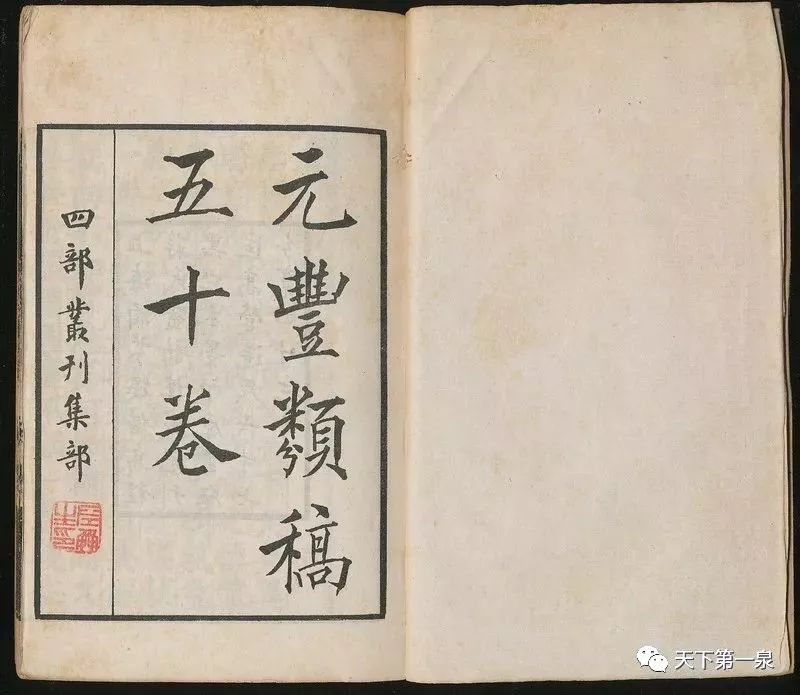 元豐類稿
五十卷
四部叢刊集部
天下第一泉